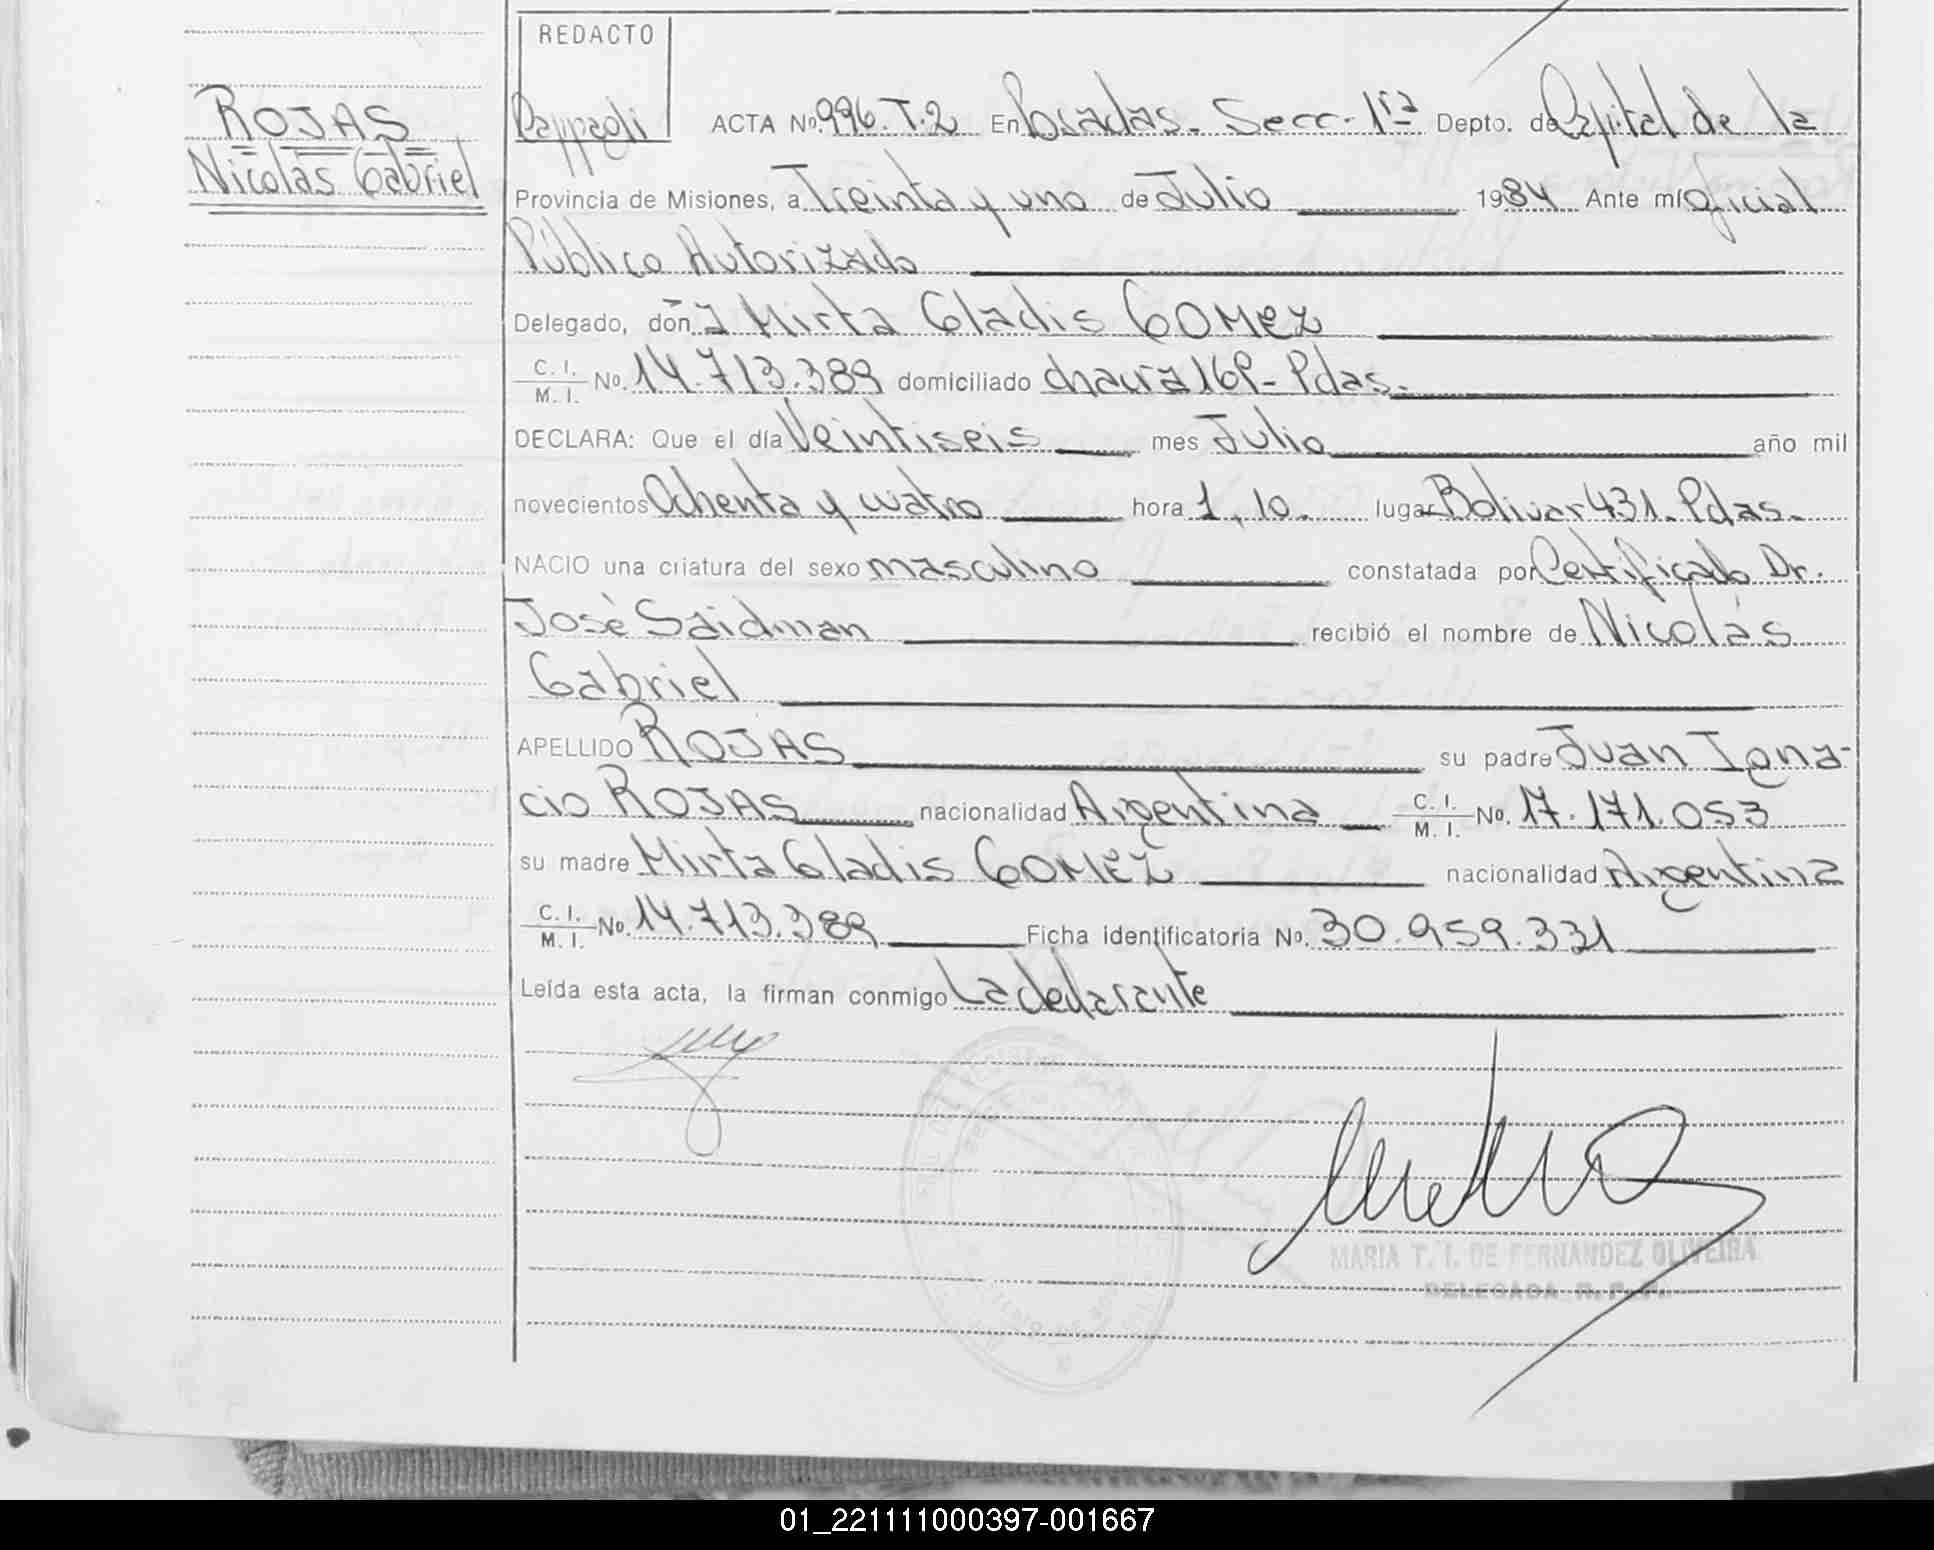 ROJAS
Nicolás Gabriel
REDACTO
ACTA Nº. 996. T. 2 En Posadas. Secc. 1ra Depto. de Capital de la
Provincia de Misiones, a Treinta y uno de Julio 1984 Ante mí Oficial
Público Autorizado
Delegado, don a Mirta Gladis GOMEZ
C. I. M. I. Nº. 14.713.389 domiciliado chacra 169- Pdas.
DECLARA: Que el día Veintiseis mes Julio año mil
novecientos Ochenta y cuatro hora 1,10. lugar Bolivar 431. Pdas.
NACIO una criatura del sexo masculino constatada por Certificado Dr.
José Saidman recibió el nombre de Nicolás
Gabriel
APELLIDO ROJAS su padre Juan Igna-
cio ROJAS nacionalidad Argentina C. I. M. I. Nº. 17.171.053
su madre Mirta Gladis GOMEZ nacionalidad Argentina
C. I. M. I. Nº. 14.713.389 Ficha identificatoria Nº. 30.959.331
Leída esta acta, la firman conmigo La declarante
MARIA T. I. DE FERNANDEZ OLIVEIRA
DELEGADA R. P. P.
01_221111000397-001667